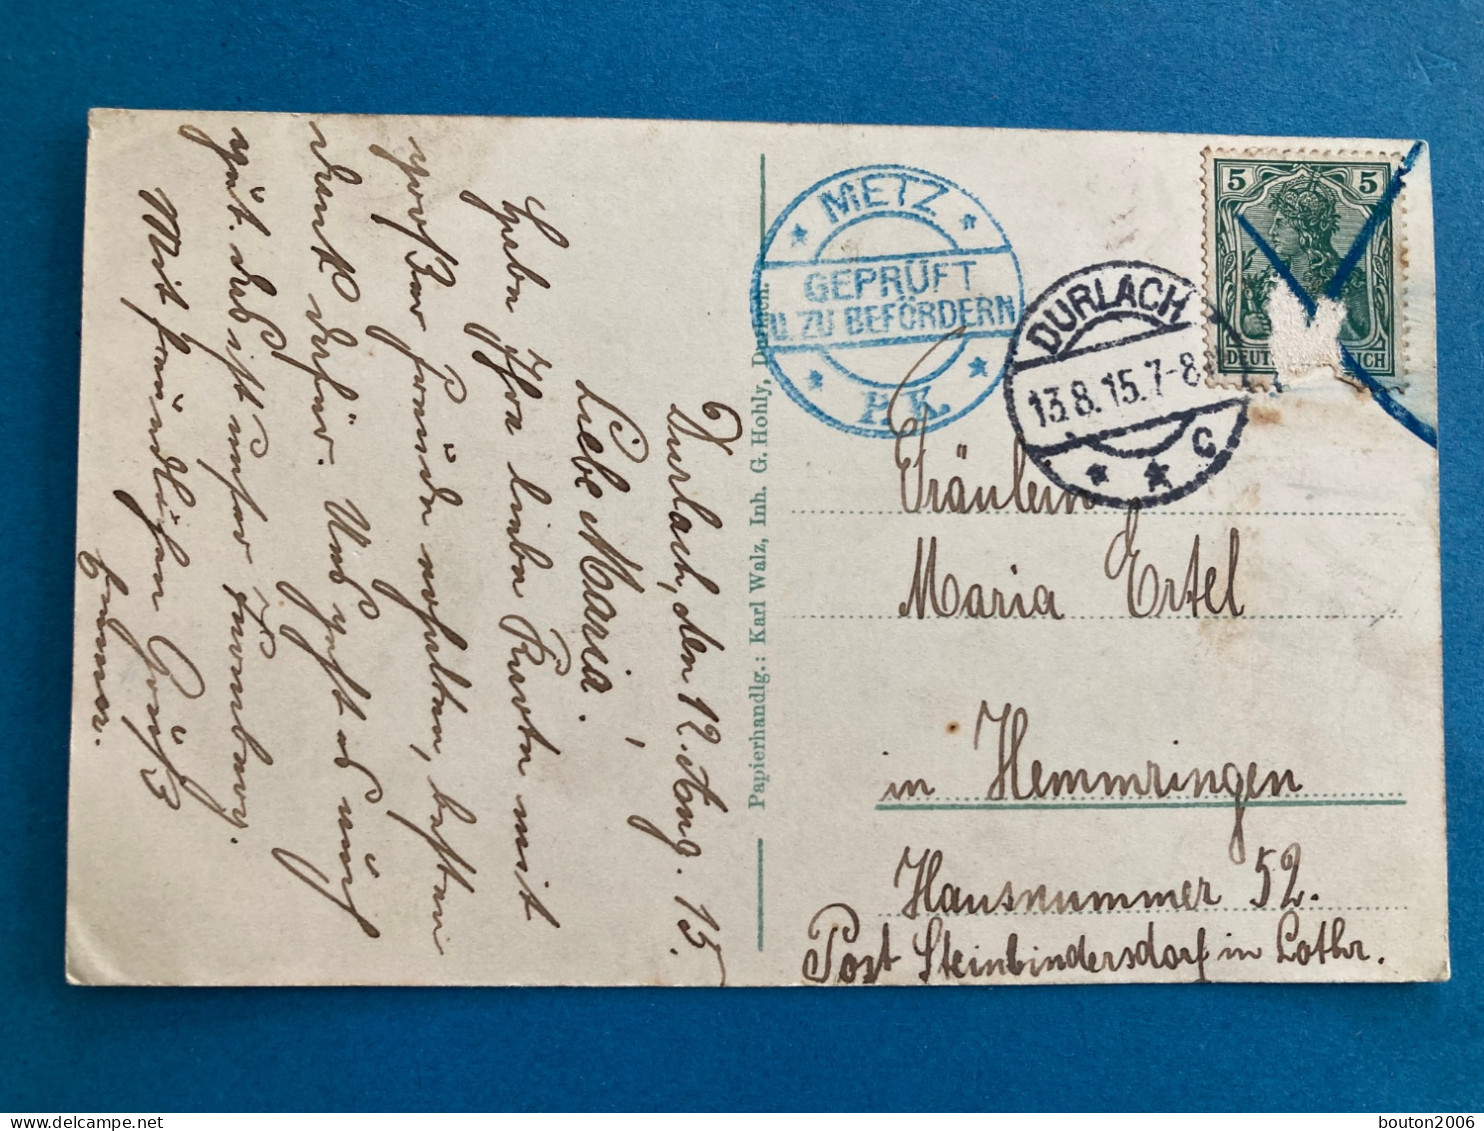 Durlach, den 12. Aug. 15.
Liebe Maria!
Habe Ihre liebe Karte mit
großer Freude erhalten, besten
Dank dafür. Uns geht es auch
gut. das ist unser Turmberg.
Mit freundlichen Grüß
Papierhandlg.: Karl Walz, Inh. G. Hohly, Durlach.
METZ
GEPRÜFT
U. ZU BEFÖRDERN
P. K.
DURLACH
13.8.15.7-8
C
5 5
DEUT ICH
Fräulein
Maria Ertel
in Hemmringen
Hausnummer 52.
Post Steinbindersdorf in Lothr.
bouton2006